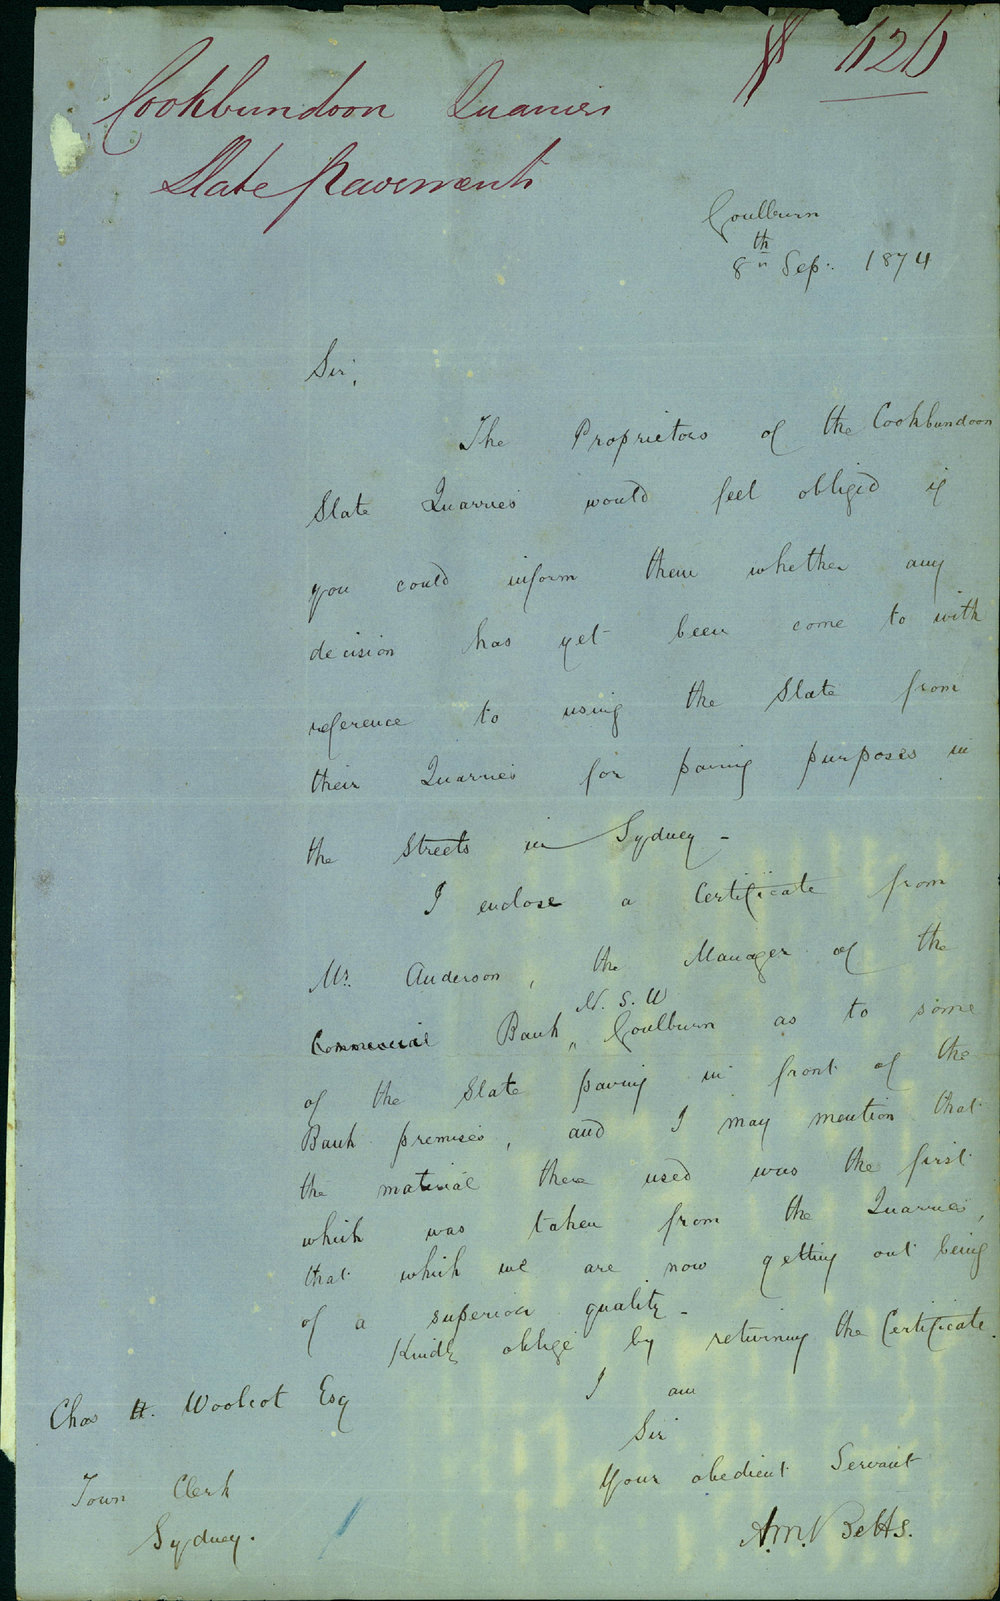 626
Cookbundoon Quarries
Slate Pavements
Goulburn
8th Sep: 1874
Sir,
The Proprietors of the Cookbundoon
Slate Quarries would feel obliged if
you could inform them whether any
decision has yet been come to with
reference to using the Slate from
their Quarries for paving purposes in
the Streets in Sydney -
I enclose a Certificate from
Mr. Anderson, the Manager of the
N. S. W
Commercial Bank, Goulburn as to some
of the Slate paving in front of the
Bank premises, and I may mention that
the material there used was the first
which was taken from the Quarries,
that which we are now getting out being
of a superior quality -
Kindly oblige by returning the Certificate.
I am
Sir
Your obedient Servant
A.M. Betts.
Chas H. Woolcot Esq
Town Clerk
Sydney.